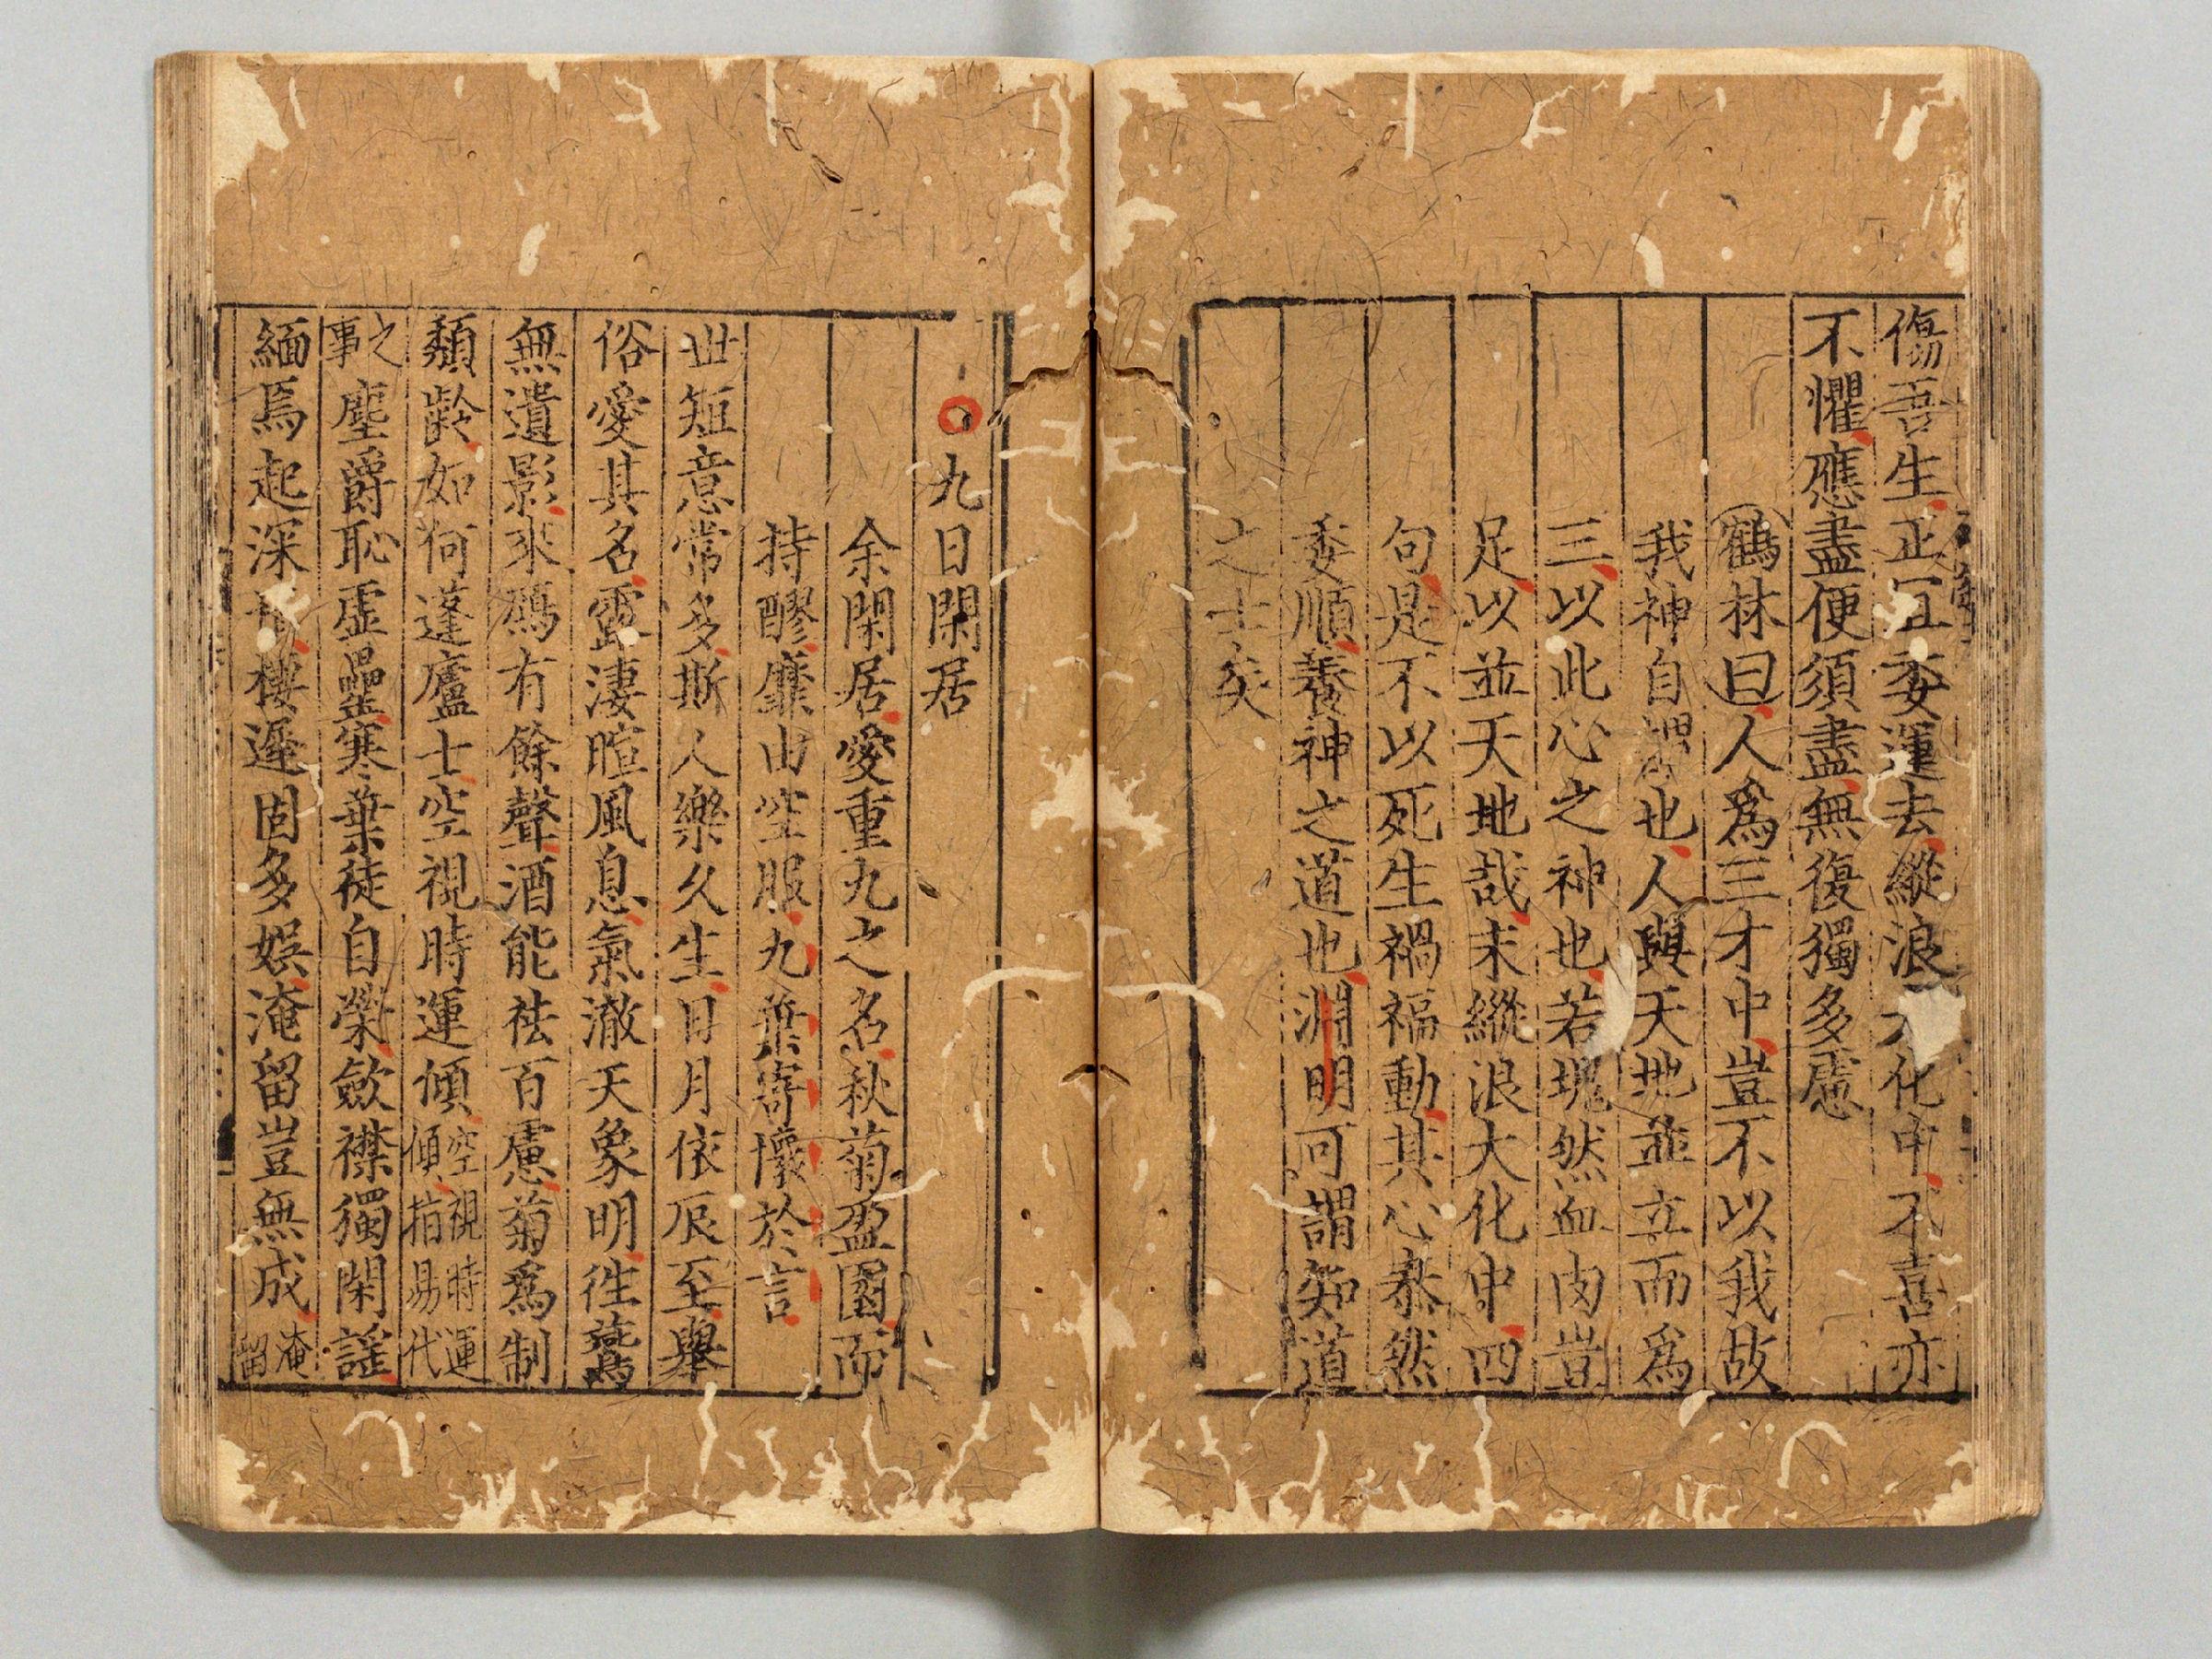 傷吾生正宜委運去縱浪大化中不喜亦
不懼應盡便須盡無復獨多慮
鶴林曰人爲三才中豈不以我故
我神自謂也人與天地並立而爲
三以此心之神也若塊然血肉豈
足以並天地哉末縱浪大化中四
句是不以死生禍福動其心泰然
委順養神之道也淵明可謂知道
之士矣
○九日閑居
余閑居愛重九之名秋菊盈園而
持醪靡由空服九華寄懷於言
世短意常多斯人樂久生日月依辰至舉
俗愛其名露淒暄風息氣澈天象明徃鷰
無遺影來鴈有餘聲酒能祛百慮菊爲制
頹齡如何蓬廬士空視時運傾空視時運傾指易代
之事塵爵恥虛罍寒華徒自榮斂襟獨閑謡
緬焉起深情棲遲固多娛淹留豈無成淹留